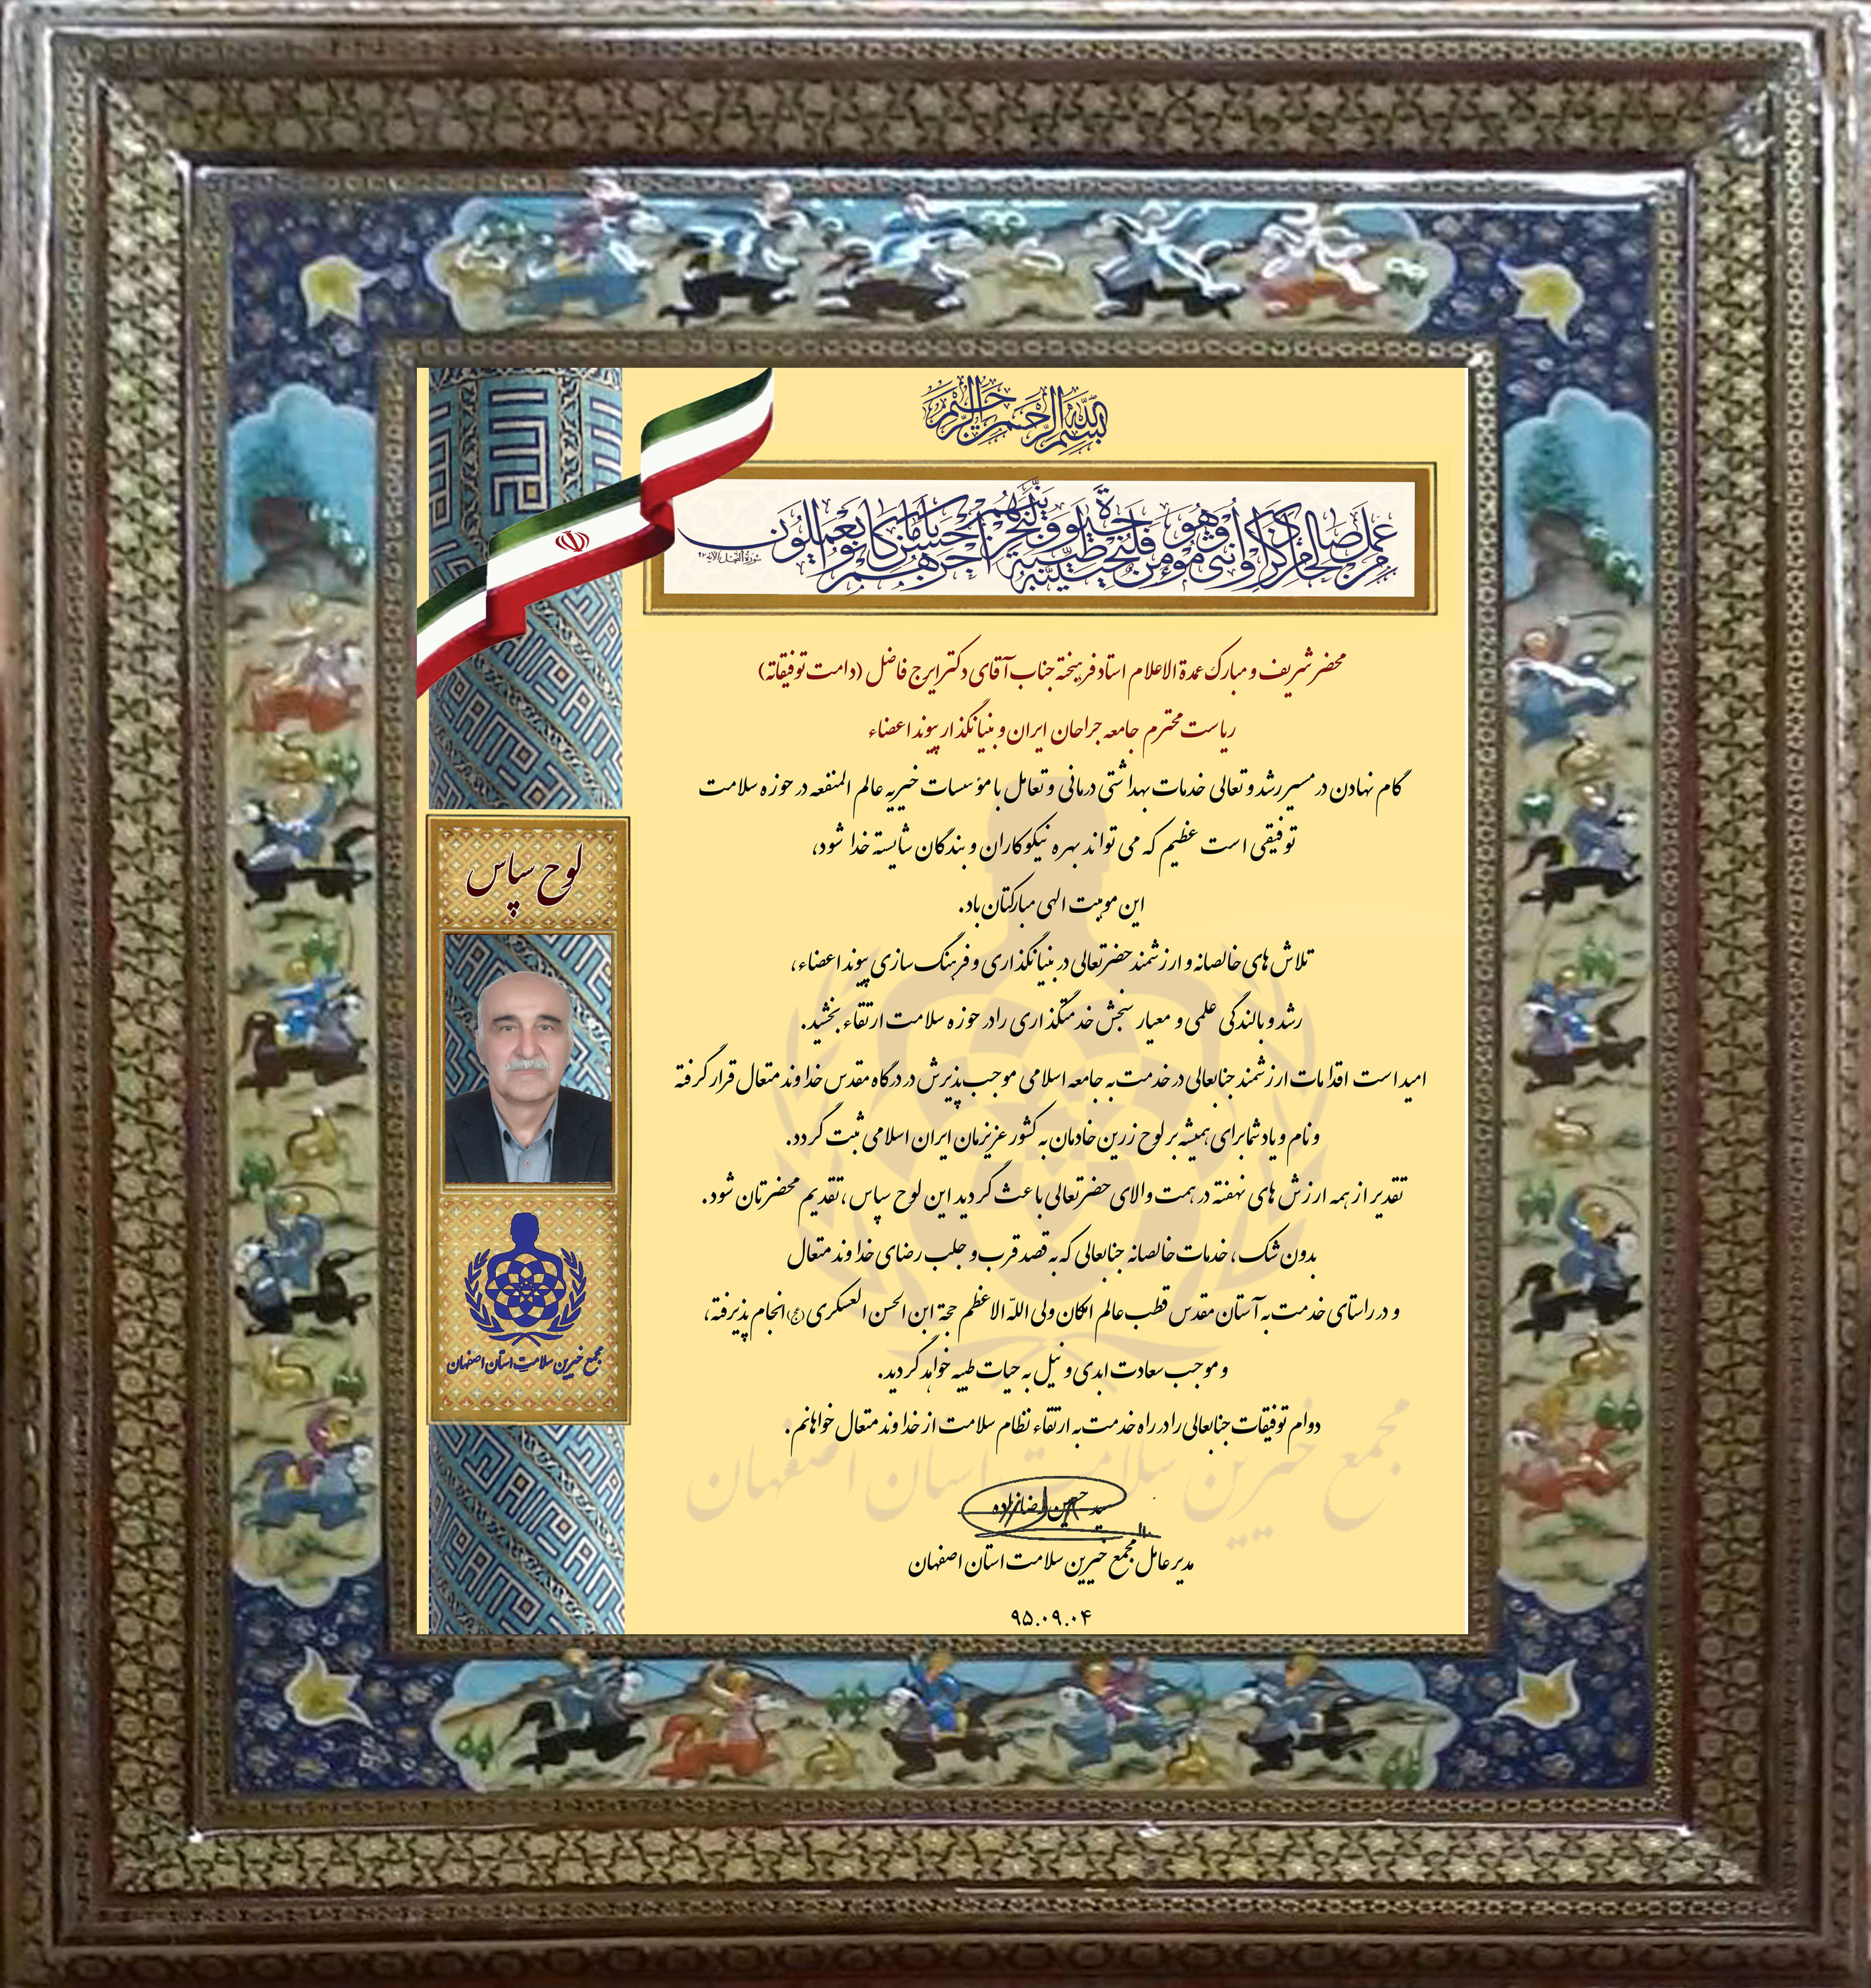 بسم الله الرحمن الرحیم
من عمل صالحا من ذکر او انثی و هو مؤمن فلنحیینه حیوة طیبة و لنجزینهم اجرهم باحسن ما کانوا یعملون
سورة النحل الآیه ۹۷
محضر شریف و مبارک عمدة الاعلام استاد فرهیخته جناب آقای دکتر ایرج فاضل (دامت توفیقاته)
ریاست محترم جامعه جراحان ایران و بنیانگذار پیوند اعضاء
گام نهادن در مسیر رشد و تعالی خدمات بهداشتی درمانی و تعامل با مؤسسات خیریه عالم المنفعه در حوزه سلامت
توفیقی است عظیم که می تواند بهره نیکوکاران و بندگان شایسته خدا شود،
این موهبت الهی مبارکتان باد.
تلاش های خالصانه و ارزشمند حضرتعالی در بنیانگذاری و فرهنگ سازی پیوند اعضاء،
رشد و بالندگی علمی و معیار سنجش خدمتگذاری را در حوزه سلامت ارتقاء بخشید.
امید است اقدامات ارزشمند جنابعالی در خدمت به جامعه اسلامی موجب پذیرش در درگاه مقدس خداوند متعال قرار گرفته
و نام و یاد شما برای همیشه بر لوح زرین خادمان به کشور عزیزمان ایران اسلامی ثبت گردد.
تقدیر از همه ارزش های نهفته در همت والای حضرتعالی باعث گردید این لوح سپاس، تقدیم محضرتان شود.
بدون شک، خدمات خالصانه جنابعالی که به قصد قرب و جلب رضای خداوند متعال
و در راستای خدمت به آستان مقدس قطب عالم امکان ولی الله الاعظم حجة ابن الحسن العسکری (عج) انجام پذیرفته،
و موجب سعادت ابدی و نیل به حیات طیبه خواهد گردید.
دوام توفیقات جنابعالی را در راه خدمت به ارتقاء نظام سلامت از خداوند متعال خواهانم.
سید حسین رضازاده
مدیر عامل مجمع خیرین سلامت استان اصفهان
۹۵.۰۹.۰۴
لوح سپاس
مجمع خیرین سلامت استان اصفهان
مجمع خیرین سلامت استان اصفهان